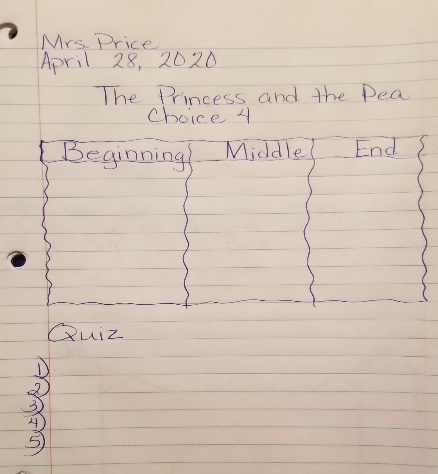 Mrs. Price
April 28, 2020
The Princess and the Pea
Choice 4
Beginning Middle End
Quiz
1)
2)
3)
4)
5)